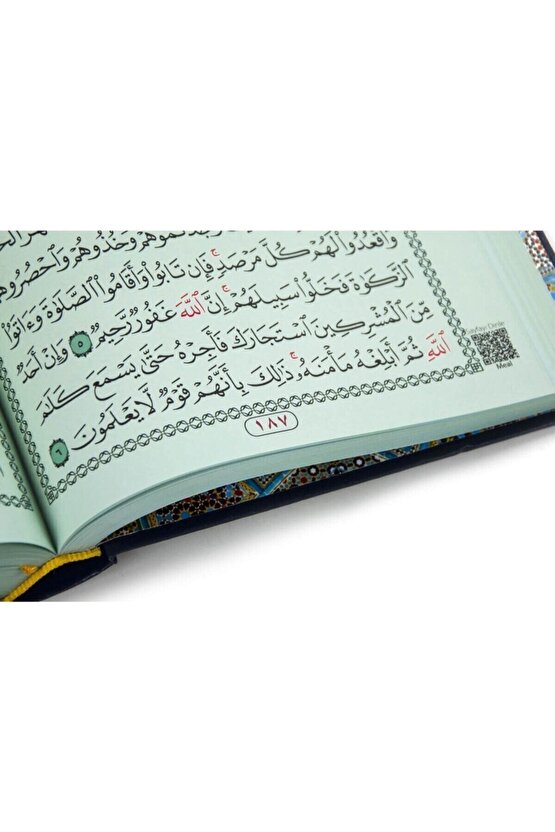 وَخُذُوهُمْ وَٱحْصُرُوهُمْ
وَٱقْعُدُوا۟ لَهُمْ كُلَّ مَرْصَدٍۚ فَإِن تَابُوا۟ وَأَقَامُوا۟ ٱلصَّلَوٰةَ وَءَاتَوُا۟
ٱلزَّكَوٰةَ فَخَلُّوا۟ سَبِيلَهُمْۚ إِنَّ ٱللَّهَ غَفُورٌ رَّحِيمٌ ٥ وَإِنْ أَحَدٌ
مِّنَ ٱلْمُشْرِكِينَ ٱسْتَجَارَكَ فَأَجِرْهُ حَتَّىٰ يَسْمَعَ كَلَٰمَ
ٱللَّهِ ثُمَّ أَبْلِغْهُ مَأْمَنَهُۥۚ ذَٰلِكَ بِأَنَّهُمْ قَوْمٌ لَّا يَعْلَمُونَ ٦
١٨٧
Sayfayı Dinle
Meal